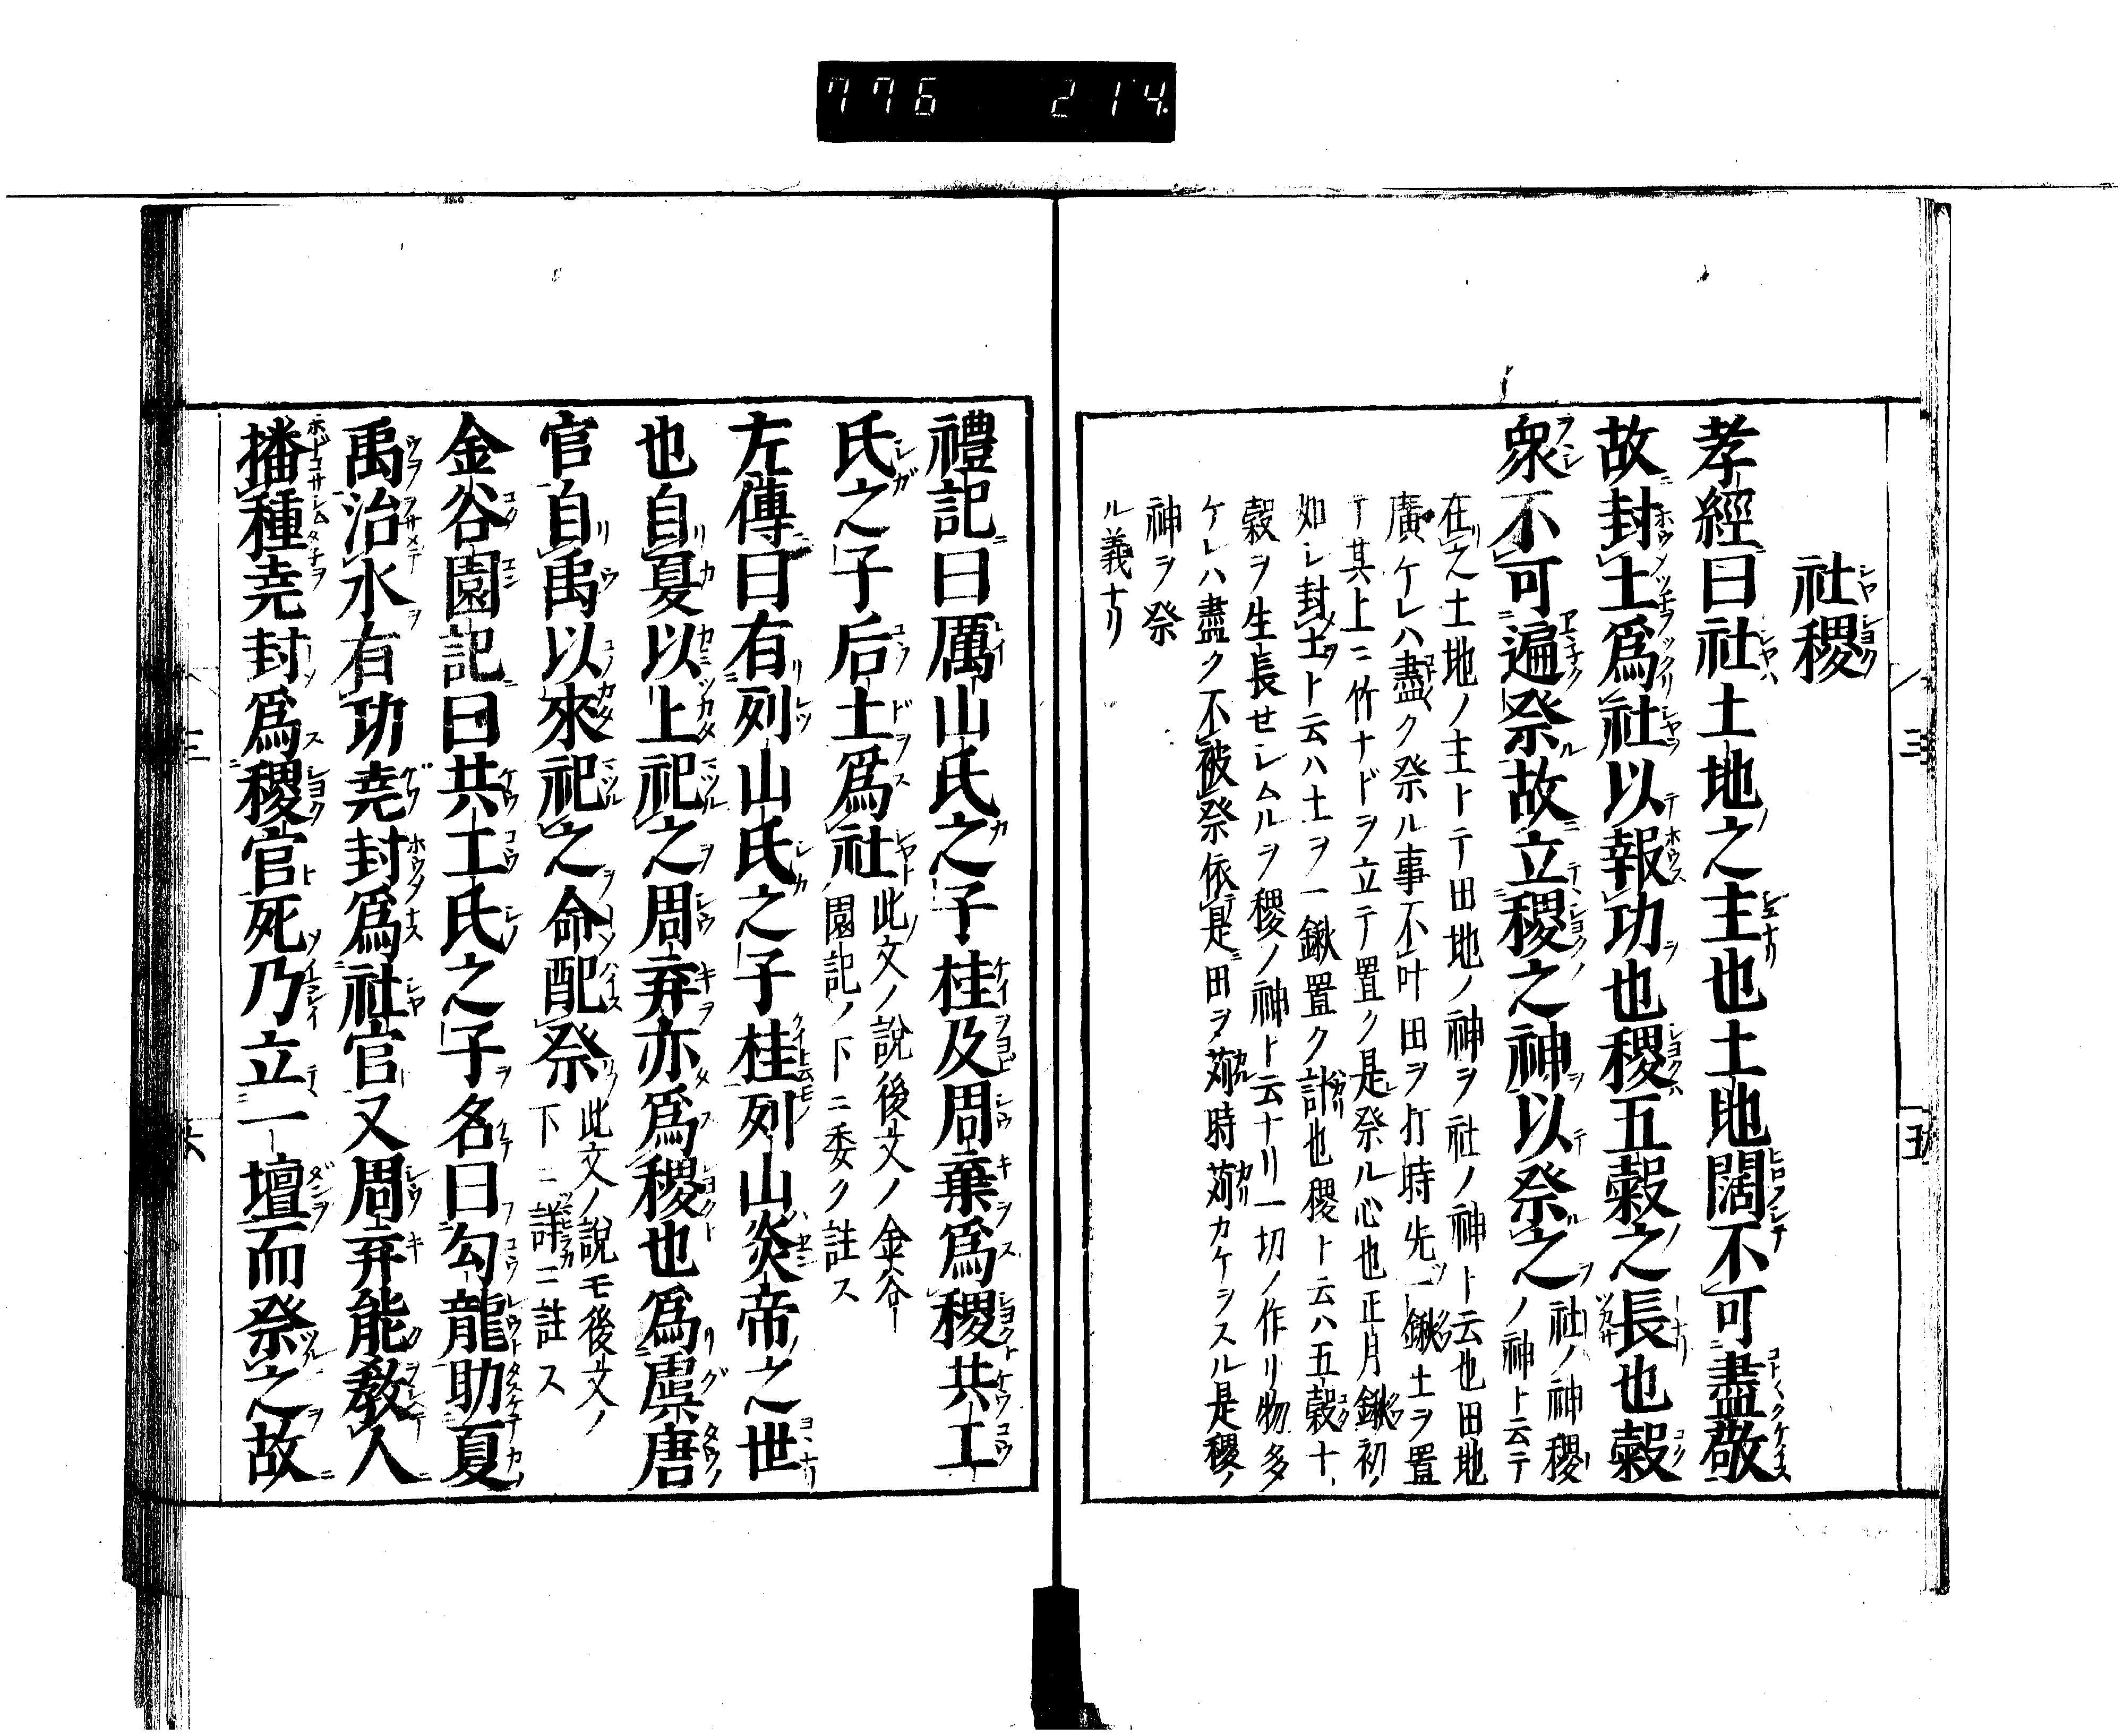 776 214
社稷
孝經曰社土地之主也土地闊不可盡敬
故封土爲社以報功也稷五糓之長也糓
衆不可遍祭故立稷之神以祭之
社ノ神稷
ノ神ト云テ
在之土地ノ主トテ田地ノ神ヲ社ノ神ト云也田地
廣ケレハ盡ク祭ル事不叶田ヲ打時先一鍬土ヲ置
テ其上ニ竹ナドヲ立テ置ク是祭ル心也正月鍬初ノ
如レ封土ト云ハ土ヲ一鍬置ク計也稷ト云ハ五穀ナ
穀ヲ生長せレムルヲ稷ノ神ト云ナリ一切ノ作リ物多
ケレハ盡ク不被祭依是田ヲ苅時苅カケヲスル是稷ノ
神ヲ祭
ル義ナリ
禮記曰厲山氏之子桂及周棄爲稷共工
氏之子后土爲社
此文ノ說後文ノ金谷
園記ノ下ニ委ク註ス
左傳曰有列山氏之子桂列山炎帝之世
也自夏以上祀之周弃亦爲稷也爲虞唐
官自禹以來祀之命配祭
此文ノ說モ後文ノ
下ニ詳ニ註ス
金谷園記曰共工氏之子名曰勾龍助夏
禹治水有功堯封爲社官又周弃能敎人
播種堯封爲稷官死乃立一壇而祭之故
三
五
三
六